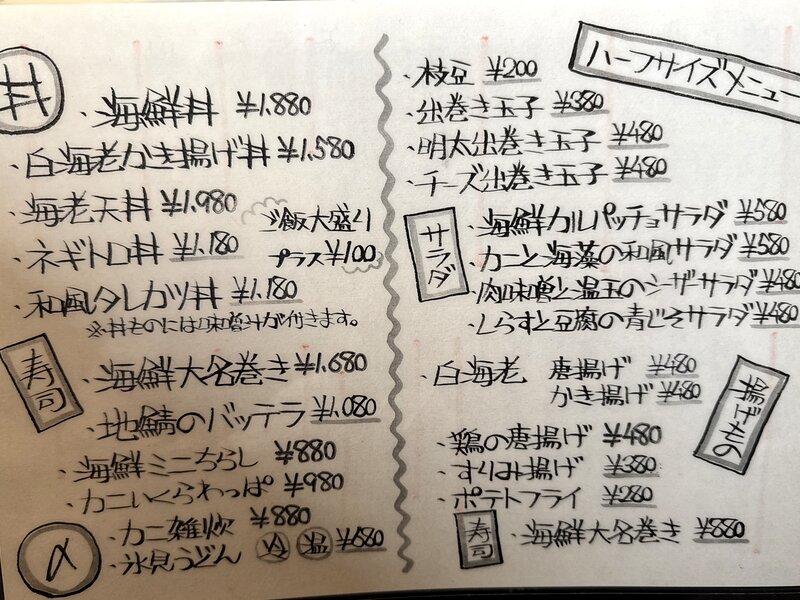 丼
・海鮮丼 ¥1.880
・白海老かき揚げ丼 ¥1.580
・海老天丼 ¥1.980
ご飯大盛り
プラス¥100
・ネギトロ丼 ¥1.180
・和風タレカツ丼 ¥1.180
※丼ものには味噌汁が付きます。
寿司
・海鮮大名巻き ¥1.680
・地鯖のバッテラ ¥1.080
・海鮮ミニちらし ¥880
・カニいくらわっぱ ¥980
〆
・カニ雑炊 ¥880
・氷見うどん 冷 温 ¥680
ハーフサイズメニュー
・枝豆 ¥200
・出巻き玉子 ¥380
・明太出巻き玉子 ¥480
・チーズ出巻き玉子 ¥480
サラダ
・海鮮カルパッチョサラダ ¥580
・カニと海藻の和風サラダ ¥580
・肉味噌と温玉のシーザーサラダ ¥480
・しらすと豆腐の青じそサラダ ¥480
揚げもの
・白海老 唐揚げ ¥480
かき揚げ ¥480
・鶏の唐揚げ ¥480
・すりみ揚げ ¥380
・ポテトフライ ¥280
寿司
・海鮮大名巻き ¥880